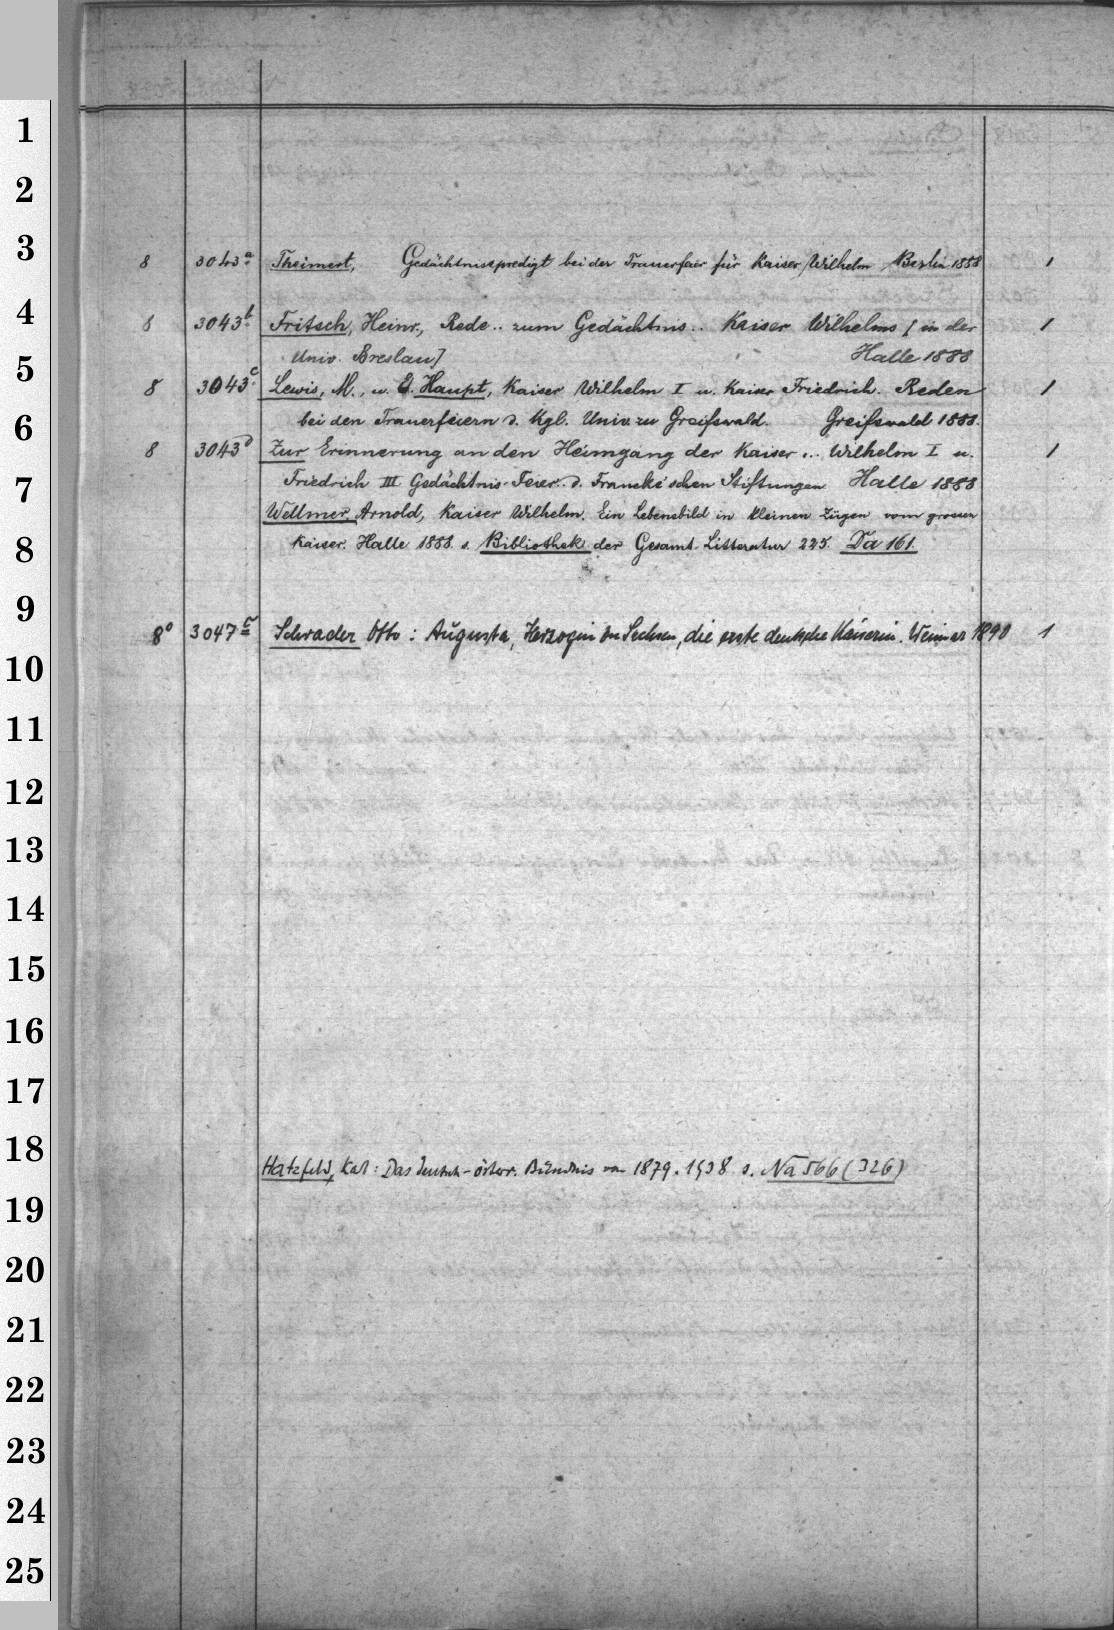 1
2
3
4
5
6
7
8
9
10
11
12
13
14
15
16
17
18
19
20
21
22
23
24
25
8 3043a Theinert, Gedächtnispredigt bei der Trauerfeier für Kaiser Wilhelm Berlin 1888 1
8 3043b Fritsch, Heinr., Rede .. zum Gedächtnis .. Kaiser Wilhelms [in der 1
Univ. Breslau] Halle 1888
8 3043c Lewis, M., u. E. Haupt, Kaiser Wilhelm I u. Kaiser Friedrich. Reden 1
bei den Trauerfeiern d. Kgl. Univ. zu Greifswald. Greifswald 1888.
8 3043d Zur Erinnerung an den Heimgang der Kaiser ... Wilhelm I u. 1
Friedrich III Gedächtnis-Feier .. d. Francke'schen Stiftungen Halle 1888
Wellmer, Arnold, Kaiser Wilhelm. Ein Lebensbild in kleinen Zügen vom grossen
Kaiser. Halle 1888. s. Bibliothek der Gesamt-Litteratur 225. Da 161.
8° 3047c Schrader Otto: Augusta, Herzogin zu Sachsen, die erste deutsche Kaiserin. Weimar 1890 1
Hatzfeld, Karl: Das deutsch-österr. Bündnis von 1879. 1938 s. Na 566 (326)